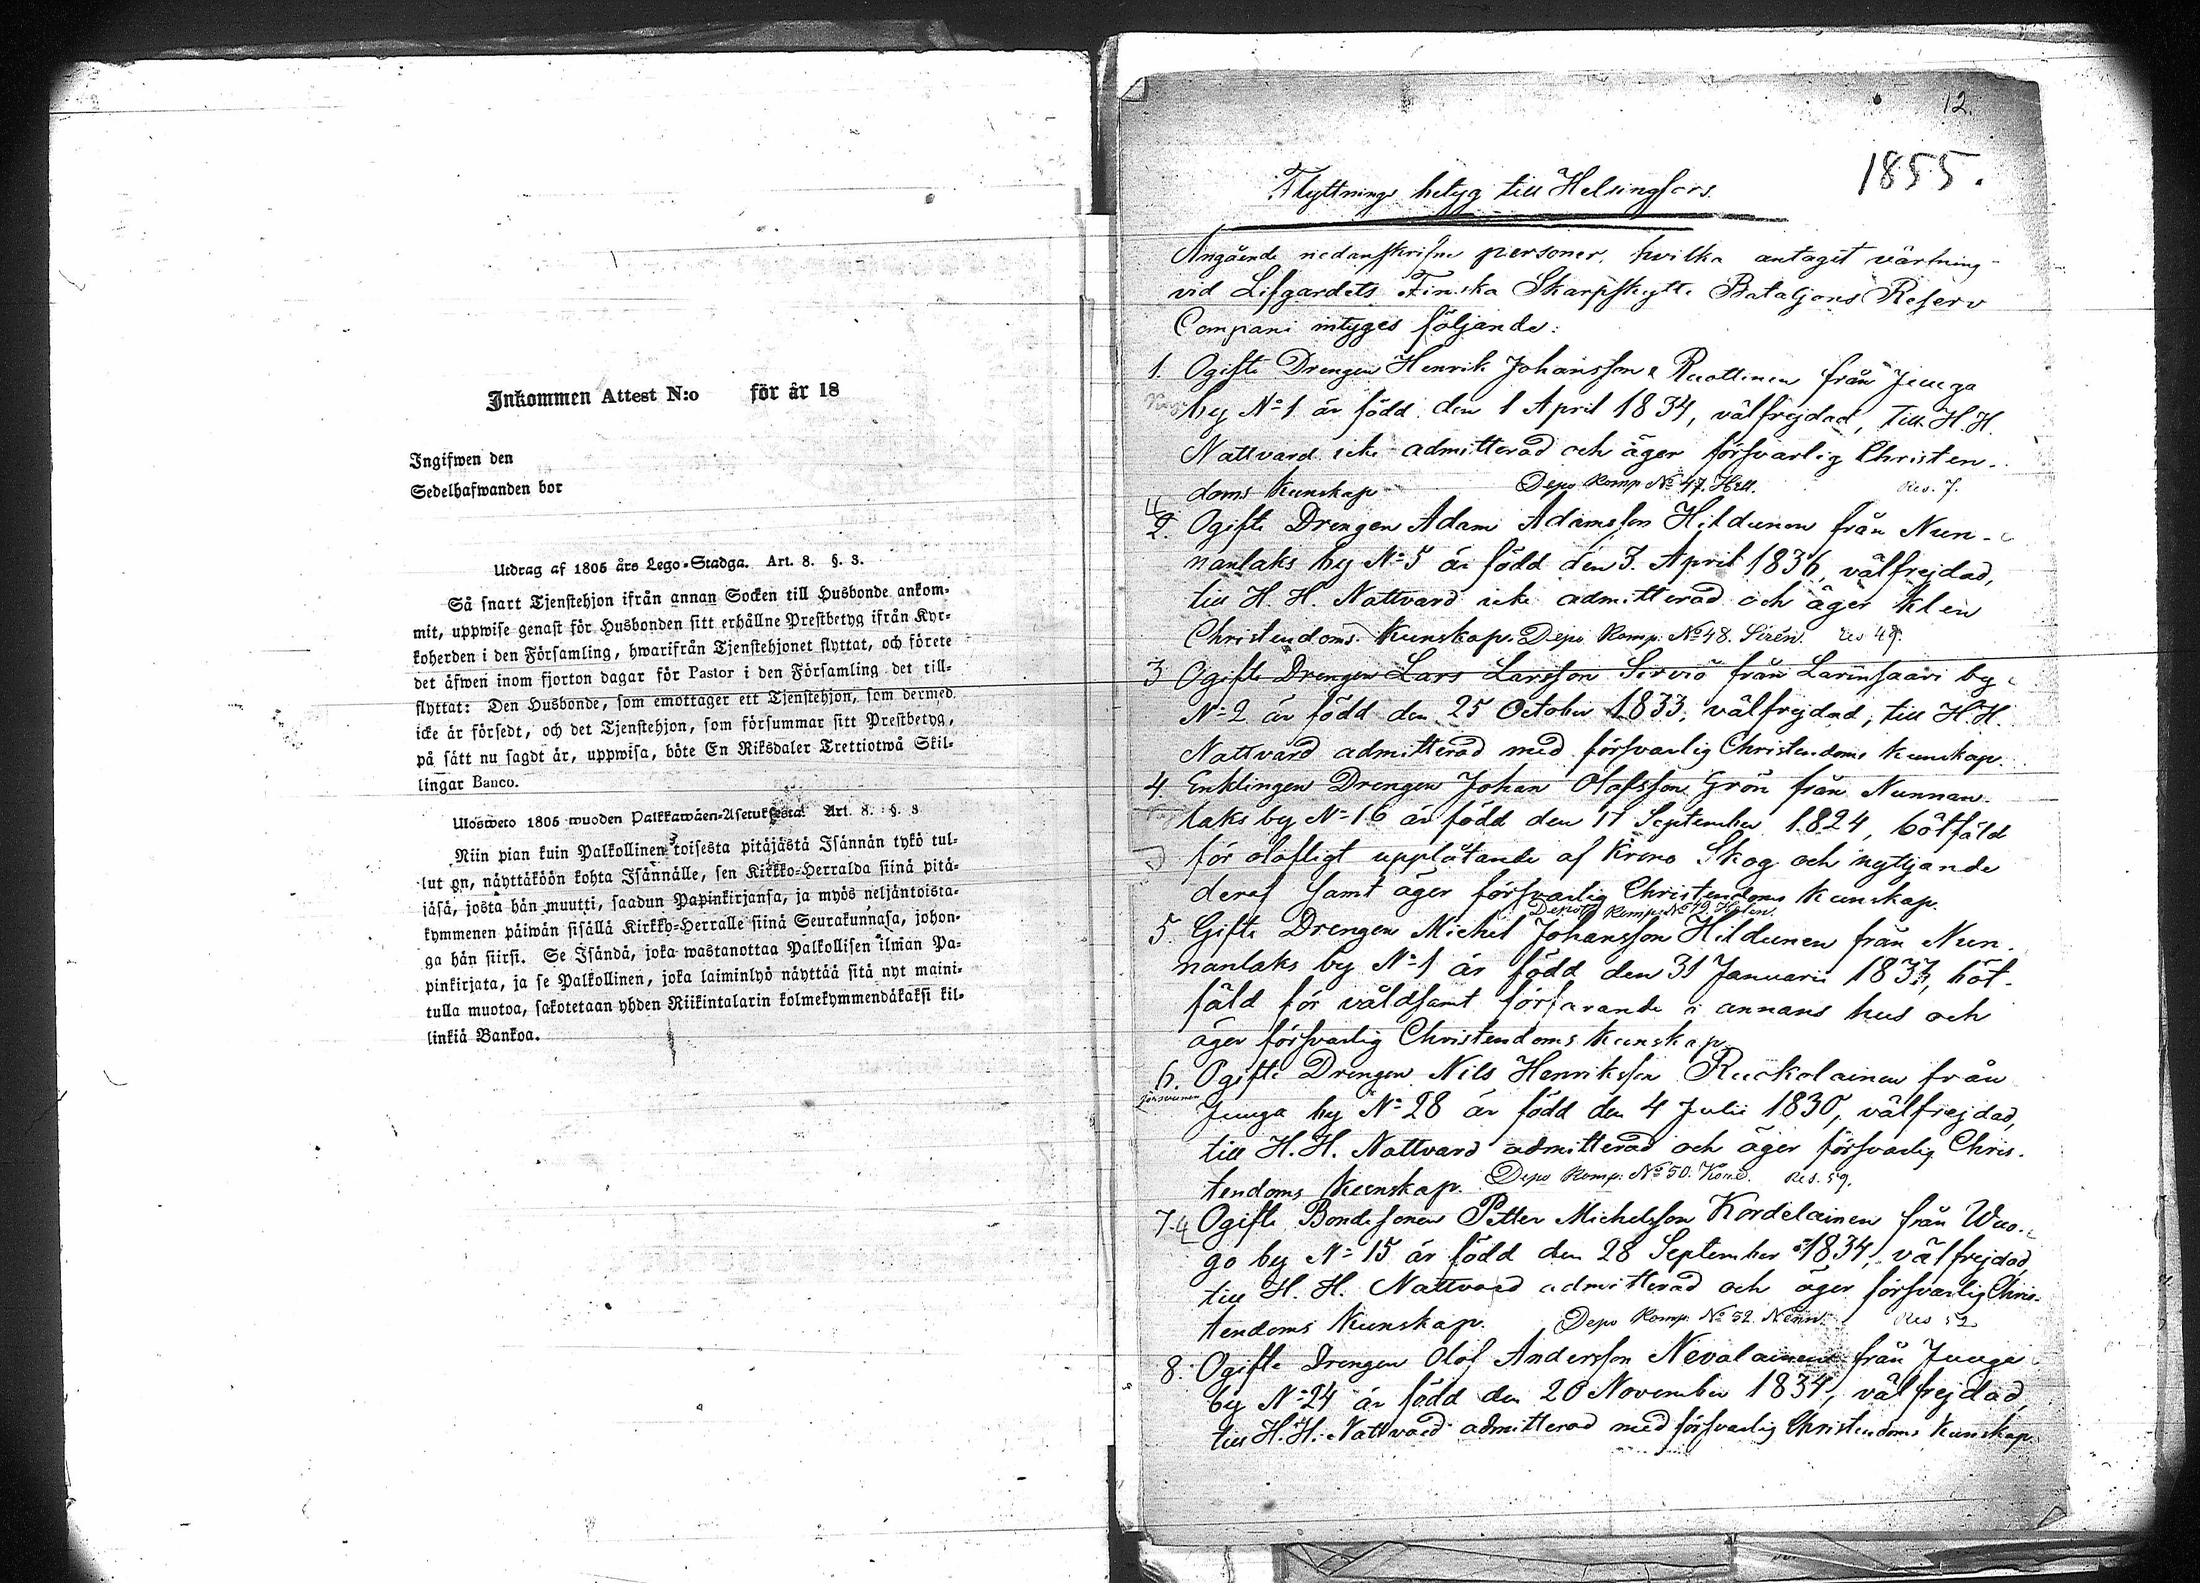 Inkommen Attest N:o för år 18
Ingifwen den
Sedelhafwanden bor
Utdrag af 1805 års Lego-Stadga. Art. 8. §. 3.
Så snart Tjenstehjon ifrån annan Socken till Husbonde ankom-
mit, uppwise genast för Husbonden sitt erhållne Prestbetyg ifrån Kyr-
koherden i den Församling, hwarifrån Tjenstehjonet flyttat, och förete
det äfwen inom fjorton dagar för Pastor i den Församling det till-
flyttat: Den Husbonde, som emottager ett Tjenstehjon, som dermed
icke är försedt, och det Tjenstehjon, som försummar sitt Prestbetyg,
på sätt nu sagdt är, uppwisa, böte En Riksdaler Trettiotwå Skil-
lingar Banco.
Ulosweto 1805 wuoden Palkkawäen-Asetuksesta. Art. 8. §. 3
Niin pian kuin Palkollinen toisesta pitäjästä Isännän tykö tul-
lut on, näyttäköön kohta Isännälle, sen Kirkko-Herralda siinä pitä-
jäsä, josta hän muutti, saadun Papinkirjansa, ja myös neljäntoista-
kymmenen päiwän sisällä Kirkko-Herralle siinä Seurakunnasa, johon-
ga hän siirsi. Se Isändä, joka wastanottaa Palkollisen ilman Pa-
pinkirjata, ja se Palkollinen, joka laiminlyö näyttää sitä nyt maini-
tulla muotoa, sakotetaan yhden Riikintalarin kolmekymmendäkaksi kil-
linkiä Bankoa.
12.
1855.
Flyttnings betyg till Helsingfors.
Angående nedanskrifne personer, hvilka antagit värfning
vid Lifgardets Finska Skarpskytte Bataljons Reserv
Compani intyges följande:
1. Ogifte Drengen Henrik Johansson Ruottinen från Juuga
by No 1 är född den 1 April 1834, välfrejdad, till H.H.
Nattvard icke admitterad och äger försvarlig Christen-
doms kunskap Depo Komp No 47. Hell. Res. 7.
2. Ogifte Drengen Adam Adamsson Hildunen från Nun-
nanlaks by No 5 är född den 3 April 1836, välfrejdad,
till H. H. Nattvard icke admitterad och äger klen
Christendoms kunskap. Depo Komp. No 48. Sirén. Res 49.
3 Ogifte Drengen Lars Larsson Serviö från Larinsaari by
No 2 är född den 25 October 1833, välfrejdad, till H.H.
Nattvard admitterad med försvarlig Christendoms kunskap.
4. Enklingen Drengen Johan Olofsson Grön från Nunnan-
laks by No 16 är född den 17 September 1824, bötfäld
för olofligt upplåtande af Krono Skog och nyttjande
deraf samt äger försvarlig Christendoms kunskap.
Depot Komp: No 49.
5. Gifte Drengen Michel Johansson Hildunen från Nun-
nanlaks by No 1 är född den 31 Januarii 1833, böt-
fäld för våldsamt förfarande i annans hus och
äger försvarlig Christendoms kunskap.
6. Ogifte Drengen Nils Henriksson Ruokolainen från
Juuga by No 28 är född den 4 Julii 1830, välfrejdad,
till H.H. Nattvard admitterad och äger försvarlig Chris-
tendoms kunskap. Depo Komp. No 50. Res. 59.
7. Ogifte Bondesonen Petter Michelsson Kordelainen från Wuo-
go by No 15 är född den 28 September 1834, välfrejdad,
till H. H. Nattvard admitterad och äger försvarlig Chris-
tendoms kunskap. Depo Komp. No 52. Res 52
8. Ogifte Drengen Olof Andersson Nevalainen från Juuga
by No 24 är född den 20 November 1834, välfrejdad,
till H.H. Nattvard admitterad med försvarlig Christendoms kunskap.